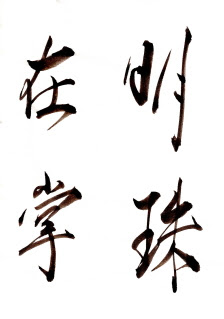 明珠
在掌